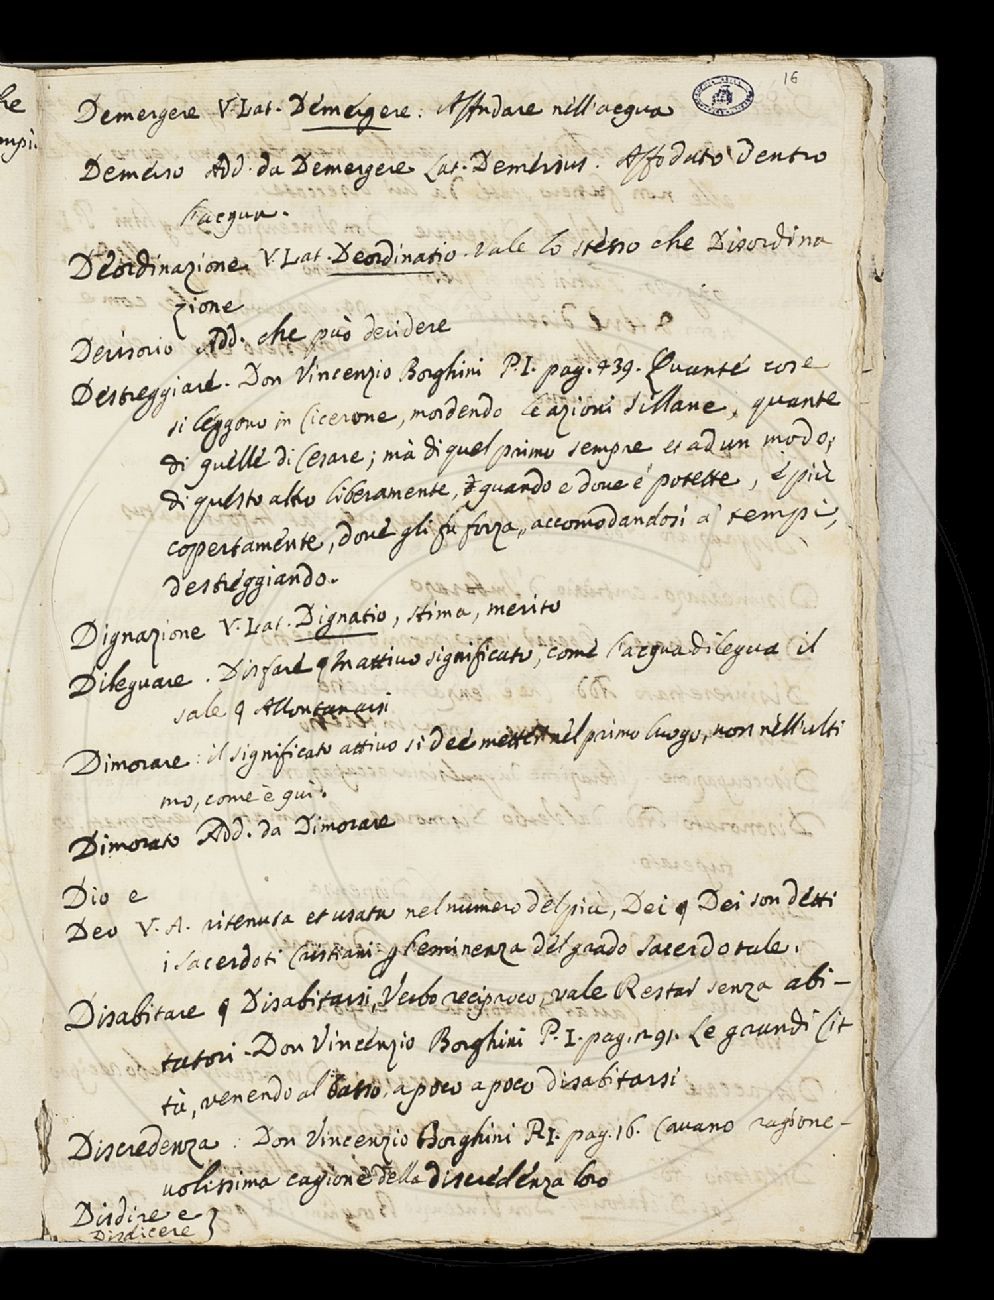 16
Demergere V. Lat. Demergere: Affndare nell'acqua
Demerso Add. da Demergere Lat. Demersus. Affodato dentro
l'acqua.
Deordinazione V. Lat. Deordinatio. vale lo stesso che Disordina
zione
Decisorio Add. che può decidere
Destreggiare. Don Vincenzio Borghini P.I. pag. 439. Quante cose
si leggono in Cicerone, mordendo le azioni Sillane, quante
di quelle di Cesare; mà di quel primo sempre et ad un modo;
di questo altro liberamente, quando e dove è potette, è più
copertamente, dove gli fù forza, accomodandosi a' tempi,
destreggiando.
Dignazione V. Lat. Dignatio, stima, merito
Dileguare. Disfare in attivo significato, come l'acqua dilegua il
sale Allontanarsi
Dimorare: il significato attivo si deè metter nel primo luogo, non nell'ulti
mo, come è qui.
Dimorato Add. da Dimorare
Dio e
Deo V. A. ritenuta et usata nel numero del più, Dei Dei son detti
i sacerdoti Cristiani p l'eminenza del grado sacerdotale.
Disabitare Disabitarsi, Verbo reciproco, vale Restar senza abi-
tatori. Don Vincenzio Borghini P. I. pag. 291. Le grandi Cit
tà, venendo al basso, a poco a poco disabitarsi
Discredenza: Don Vincenzio Borghini P.I. pag. 16. Cavano ragione-
volissima cagione della discredenza loro
Disdire e
Disdicere }